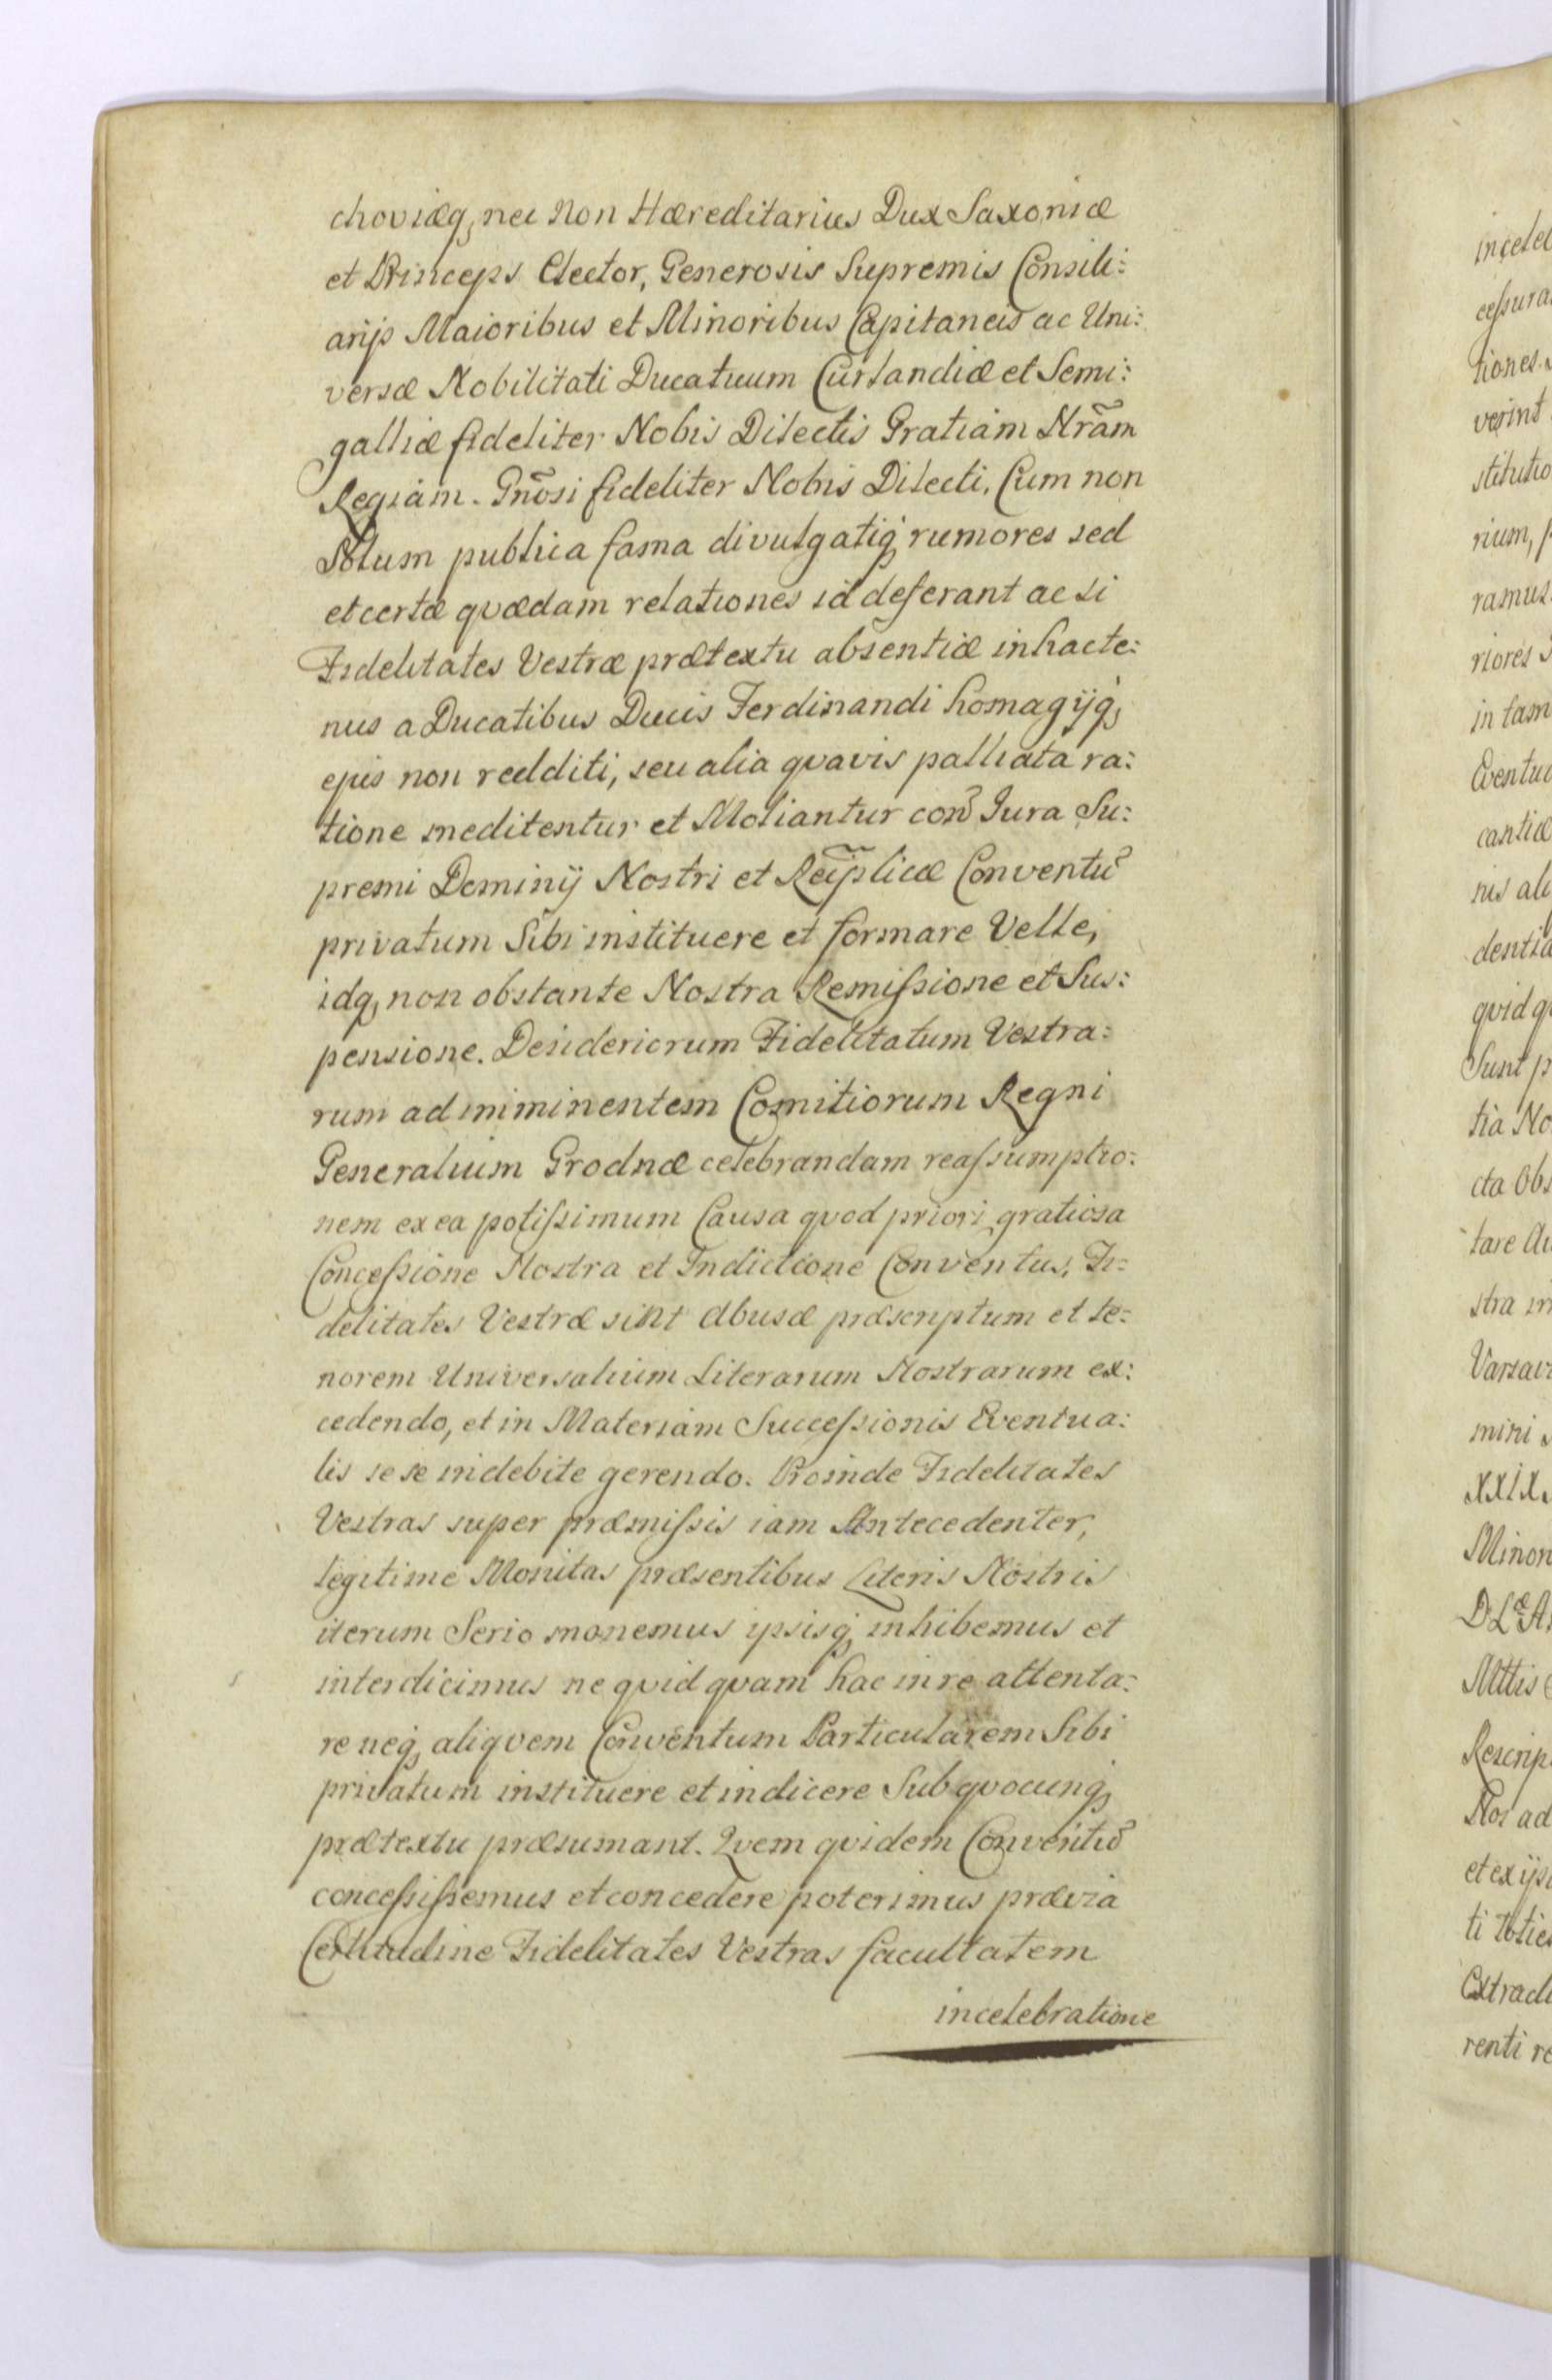 choviæq, nec Non Hæreditarius Dux Saxoniæ
et Princeps Elector, Generosis Supremis Consili:
arijs Maioribus et Minoribus Capitaneis ac Uni:
versæ Nobilitati Ducatuum Curlandiæ et Semi:
galliæ fideliter Nobis Dilectis Gratiam Nr̃am
Regiam. Gñosi fideliter Nobis Dilecti, Cum non
Solum publica fama divulgatiq, rumores sed
et certæ quædam relationes id deferant ac si
Fidelitates Vestræ prætextu absentiæ in hacte:
nus a Ducatibus Ducis Ferdinandi homagijq,
ejus non redditi, seu alia quavis palliata ra:
tione meditentur et Moliantur con͂ Jura Su:
premi Dominij Nostri et Reip̃licæ Conventũ
privatum Sibi instituere et formare Velle,
idq, non obstante Nostra Remissione et Sus:
pensione. Desideriorum Fidelitatum Vestra:
rum ad imminentem Comitiorum Regni
Generalium Grodnæ celebrandam reassumptio:
nem ex ea potissimum Causa quod priori gratiosa
Concessione Nostra et Indictione Conventus, Fi:
delitates Vestræ sint Abusæ præscriptum et te:
norem Universalium Literarum Nostrarum ex:
cedendo, et in Materiam Successionis Eventua:
lis sese indebite gerendo. Proinde Fidelitates
Vestras super præmissis iam Antecedenter,
legitime Monitas præsentibus Literis Nostris
iterum Serio monemus ipsisq, inhibemus et
interdicimus ne quid quam hac in re attenta:
re neq, aliquem Conventum Particularem Sibi
privatum instituere et indicere Sub quocunq,
prætextu præsumant. Quem quidem Conventũ
concessissemus et concedere poterimus prævia
Certitudine Fidelitates Vestras facultatem
in celebratione